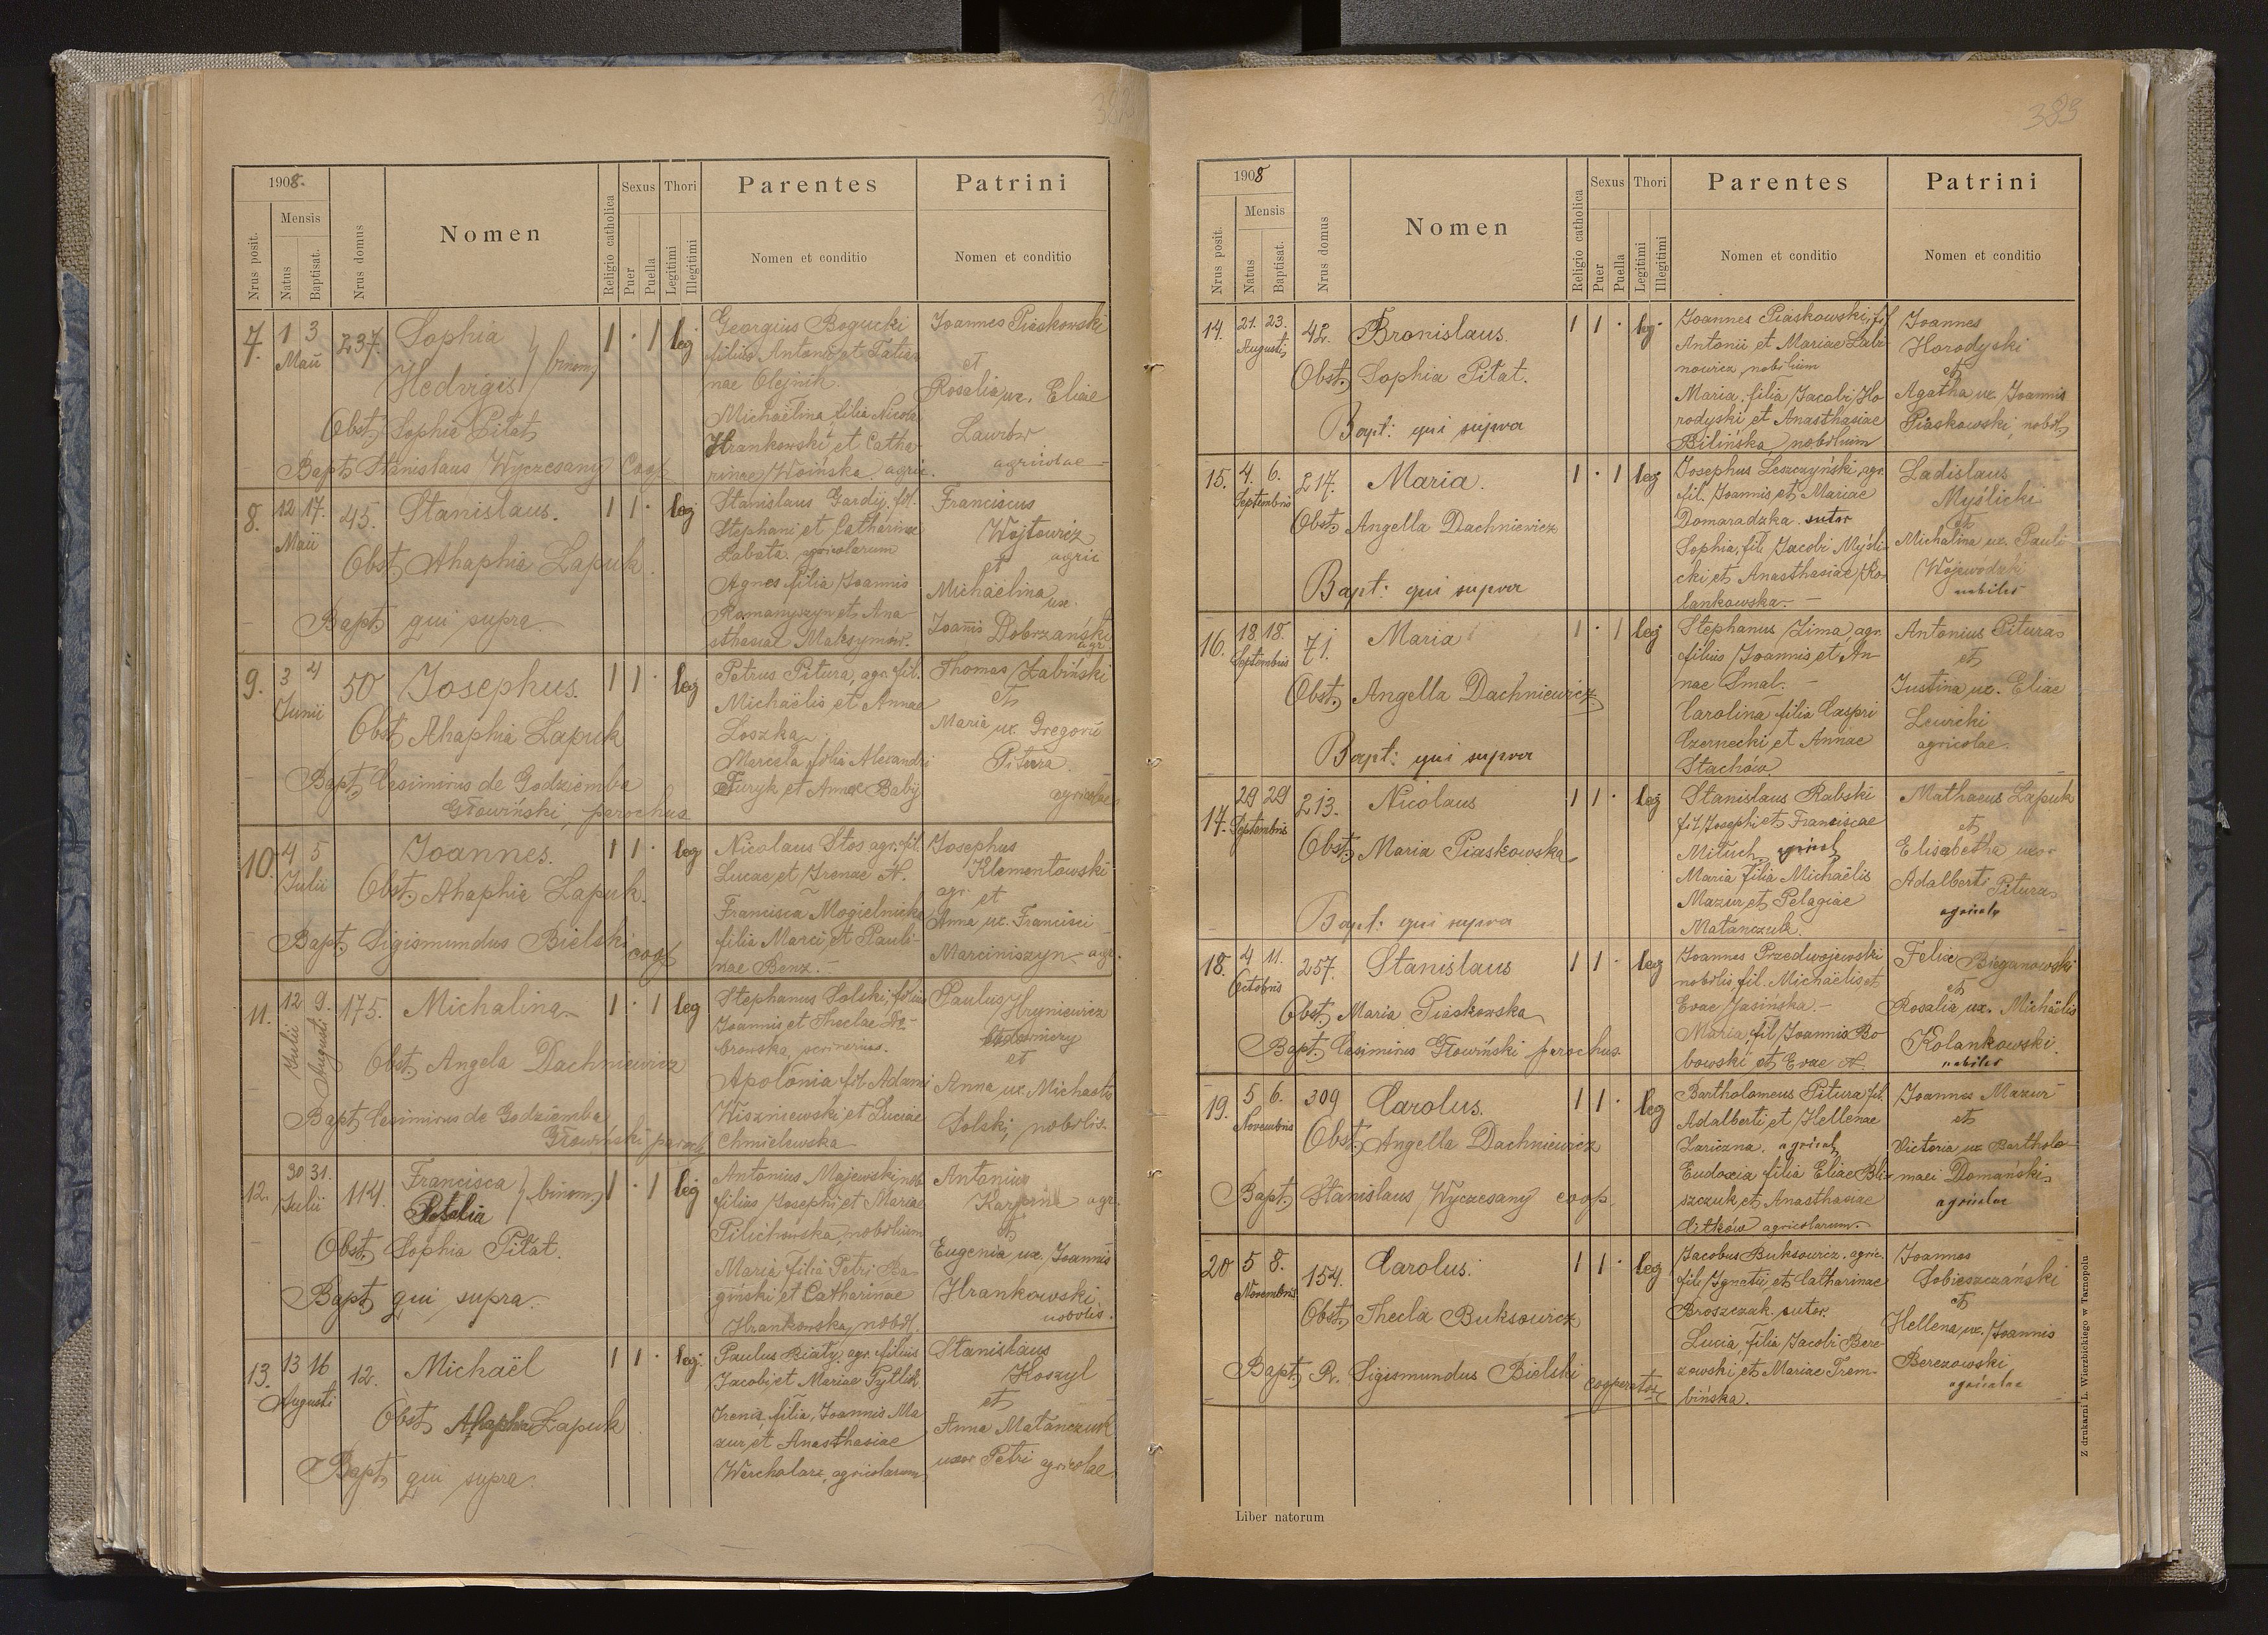 382
1908.
Nrus posit.
Mensis
Natus
Baptisat.
Nrus domus
Nomen
Religio catholica
Sexus
Puer
Puella
Thori
Legitimi
Illegitimi
Parentes
Nomen et conditio
Patrini
Nomen et conditio
7. 1 3 Maii 237. Sophia Hedviges } binom. 1 · 1 leg
Obst. Sophia Pitat
Bapt. Stanislaus Wyczesany Coop
Georgius Bogucki
filius Antonii et Tatia-
nae Olejnik.
Michaëlina, filia Nicolai
Hrankowski et Catha-
rinae Woińska agric.
Joannes Piaskowski
et
Rosalia ux. Eliae
Laurów
agricolae
8. 12 17. Maii 45. Stanislaus. 1 1 · leg
Obst. Ahaphia Lapuk.
Bapt. qui supra
Stanislaus Gardij, fil.
Stephani et Catharinae
Labata. agricolarum
Agnes filia Joannis
Romanyszyn et Ana-
sthasiae Maksymow.
Franciscus
Wojtowicz
agric
et
Michäelina ux.
Joannis Dobrzański
agr.
9. 3 4 Junii 50 Josephus. 1 1 · leg
Obst. Ahaphia Lapuk
Bapt. Casimirus de Godziemba
Głowiński, parochus
Petrus Pitura, agr. fil.
Michaëlis et Annae
Loszka
Marcela filia Alexandri
Furyk et Annae Babij
Thomas Żabiński
et
Maria ux. Gregorii
Pitura
agricolae
10. 4 5 Julii Joannes. 1 1 · leg
Obst. Ahaphia Lapuk.
Bapt. Sigismundus Bielski coop
Nicolaus Stos agr. fil.
Lucae et Irenae N.
Francisca Mogielnicka
filia Marci et Pauli-
nae Benz.
Josephus
Klementowski
agr. et
Anna ux. Francisci
Marciniszyn agr.
11. 12 Julii 9. Augusti 175. Michalina 1 · 1 leg
Obst. Angela Dachniewicz
Bapt. Casimirus de Godziemba
Głowiński paroch
Stephanus Solski, filius
Joannis et Theclae Do-
browska
Apolonia fil. Adami
Wiszniewski et Luciae
Chmielewska
Paulus Hryniewicz
et
Anna ux. Michaëlis
Solski, nobilis.
12. 30 31. Julii 114. Francisca Rosalia } binom. 1 · 1 leg
Obst. Sophia Pitat.
Bapt. qui supra.
Antonius Majewski nob
filius Josephi et Mariae
Pilichowska, nobilium
Maria filia Petri Ba-
giński et Catharinae
Hrankowska, nobil.
Antonius
Karpin agr.
et
Eugenia ux. Joannis
Hrankowski
nobilis.
13. 13 16 Augusti 12. Michaël 1 1 · leg.
Obst. Ahaphia Lapuk
Bapt. qui supra.
Paulus Biały. agr. filius
Jacobi et Mariae Pytlik
Irenis, filia, Joannis Ma-
zur et Anasthasiae
Wercholarz, agricolarum
Stanislaus
Koszyl
et
Anna Matanczuk
uxor Petri agricolae
383
1908
Nrus posit.
Mensis
Natus
Baptisat.
Nrus domus
Nomen
Religio catholica
Sexus
Puer
Puella
Thori
Legitimi
Illegitimi
Parentes
Nomen et conditio
Patrini
Nomen et conditio
14. 21. 23. Augusti 42. Bronislaus. 1 1 · leg.
Obst. Sophia Pitat.
Bapt: qui supra
Joannes Piaskowski, fil
Antonii et Mariae Labi-
nowicz, nobilium
Maria, filia Jacobi Ho-
rodyski et Anasthasiae
Bilińska nobilium
Joannes
Horodyski
et
Agatha ux Joannis
Piaskowski, nobil.
15. 4. 6. Septembris 217. Maria. 1 · 1 leg
Obst. Angella Dachniewicz
Bapt: qui supra
Josephus Leszczyński, agr.
fil. Joannis et Mariae
Domaradzka. sutor
Sophia, fil. Jacobi Myśli-
cki et Anasthasiae Ko-
lankowska.
Ladislaus
Myślicki
et
Michalina ux. Pauli
Wojewodzki
nobiles
16. 18. 18. Septembris 71. Maria 1 · 1 leg
Obst. Angella Dachniewicz
Bapt: qui supra
Stephanus Zima, agr.
filius Joannis et An-
nae Smal.
Carolina filia Caspri
Czernecki et Annae
Stachów
Antonius Pitura
et
Justina ux. Eliae
Lewicki
agricolae.
17. 29 29 Septembris 213. Nicolaus 1 1 · leg
Obst. Maria Piaskowska
Bapt: qui supra
Stanislaus Rabski
fil. Josephi et Franciscae
Mituch. agricol.
Maria filia Michaëlis
Mazur et Pelagiae
Matanczuk.
Mathaeus Lapuk
et
Elisabetha uxor
Adalberti Pitura
agricolae
18. 4 11. Octobris 257. Stanislaus 1 1 · leg
Obst. Maria Piaskowska
Bapt. Casimirus Głowiński parochus
Joannes Przedwojewski
nobilis, fil. Michaëlis et
Evae Jasińska.
Maria, fil. Joannis Bo-
bowski et Evae N.
Felix Bieganowski
et
Rosalia ux. Michaëlis
Kolankowski.
nobiles
19. 5 6. Novembris 309 Carolus. 1 1 · leg
Obst. Angella Dachniewicz
Bapt. Stanislaus Wyczesany coop.
Bartholomeus Pitura fil.
Adalberti et Hellenae
Lariczna. agricol.
Eudoxia filia Eliae Bli-
szczuk et Anasthasiae
Citków agricolarum.
Joannes Mazur
et
Victoria ux Bartholo-
maei Domański
agricolae
20 5 8. Novembris 154. Carolus. 1 1 · leg
Obst. Thecla Buksowicz
Bapt. R. Sigismundus Bielski cooperator
Jacobus Buksowicz. agric.
fil. Ignatii et Catharinae
Broszczak. sutor.
Lucia, filia Jacobi Bere-
zowski et Mariae Trem-
bińska.
Joannes
Sobieszczański
et
Hellena ux. Joannis
Berezowski
agricolae
Liber natorum
Z drukarni L. Wierzbickiego w Tarnopolu